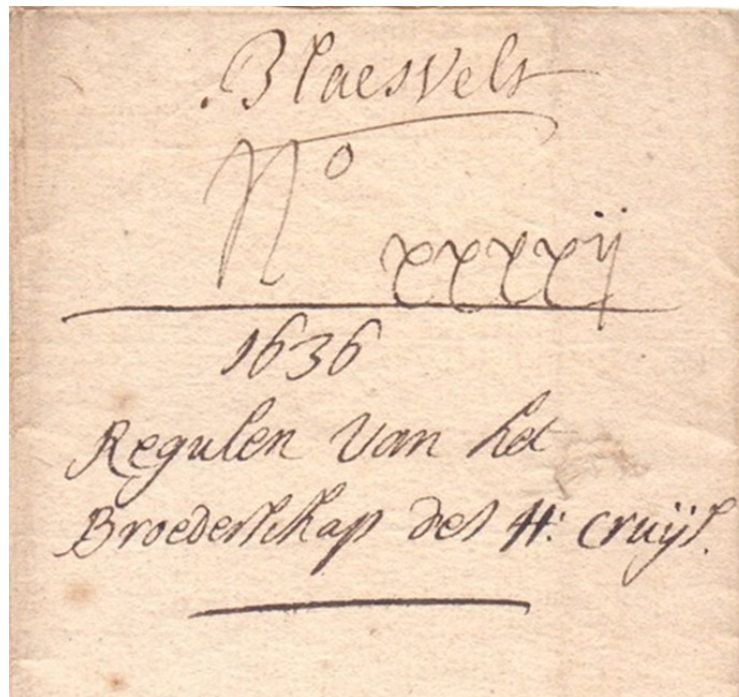 . Blaesvelt
N°
xxxxij
1636
Regulen van het
Broederschap des H: Cruijs.